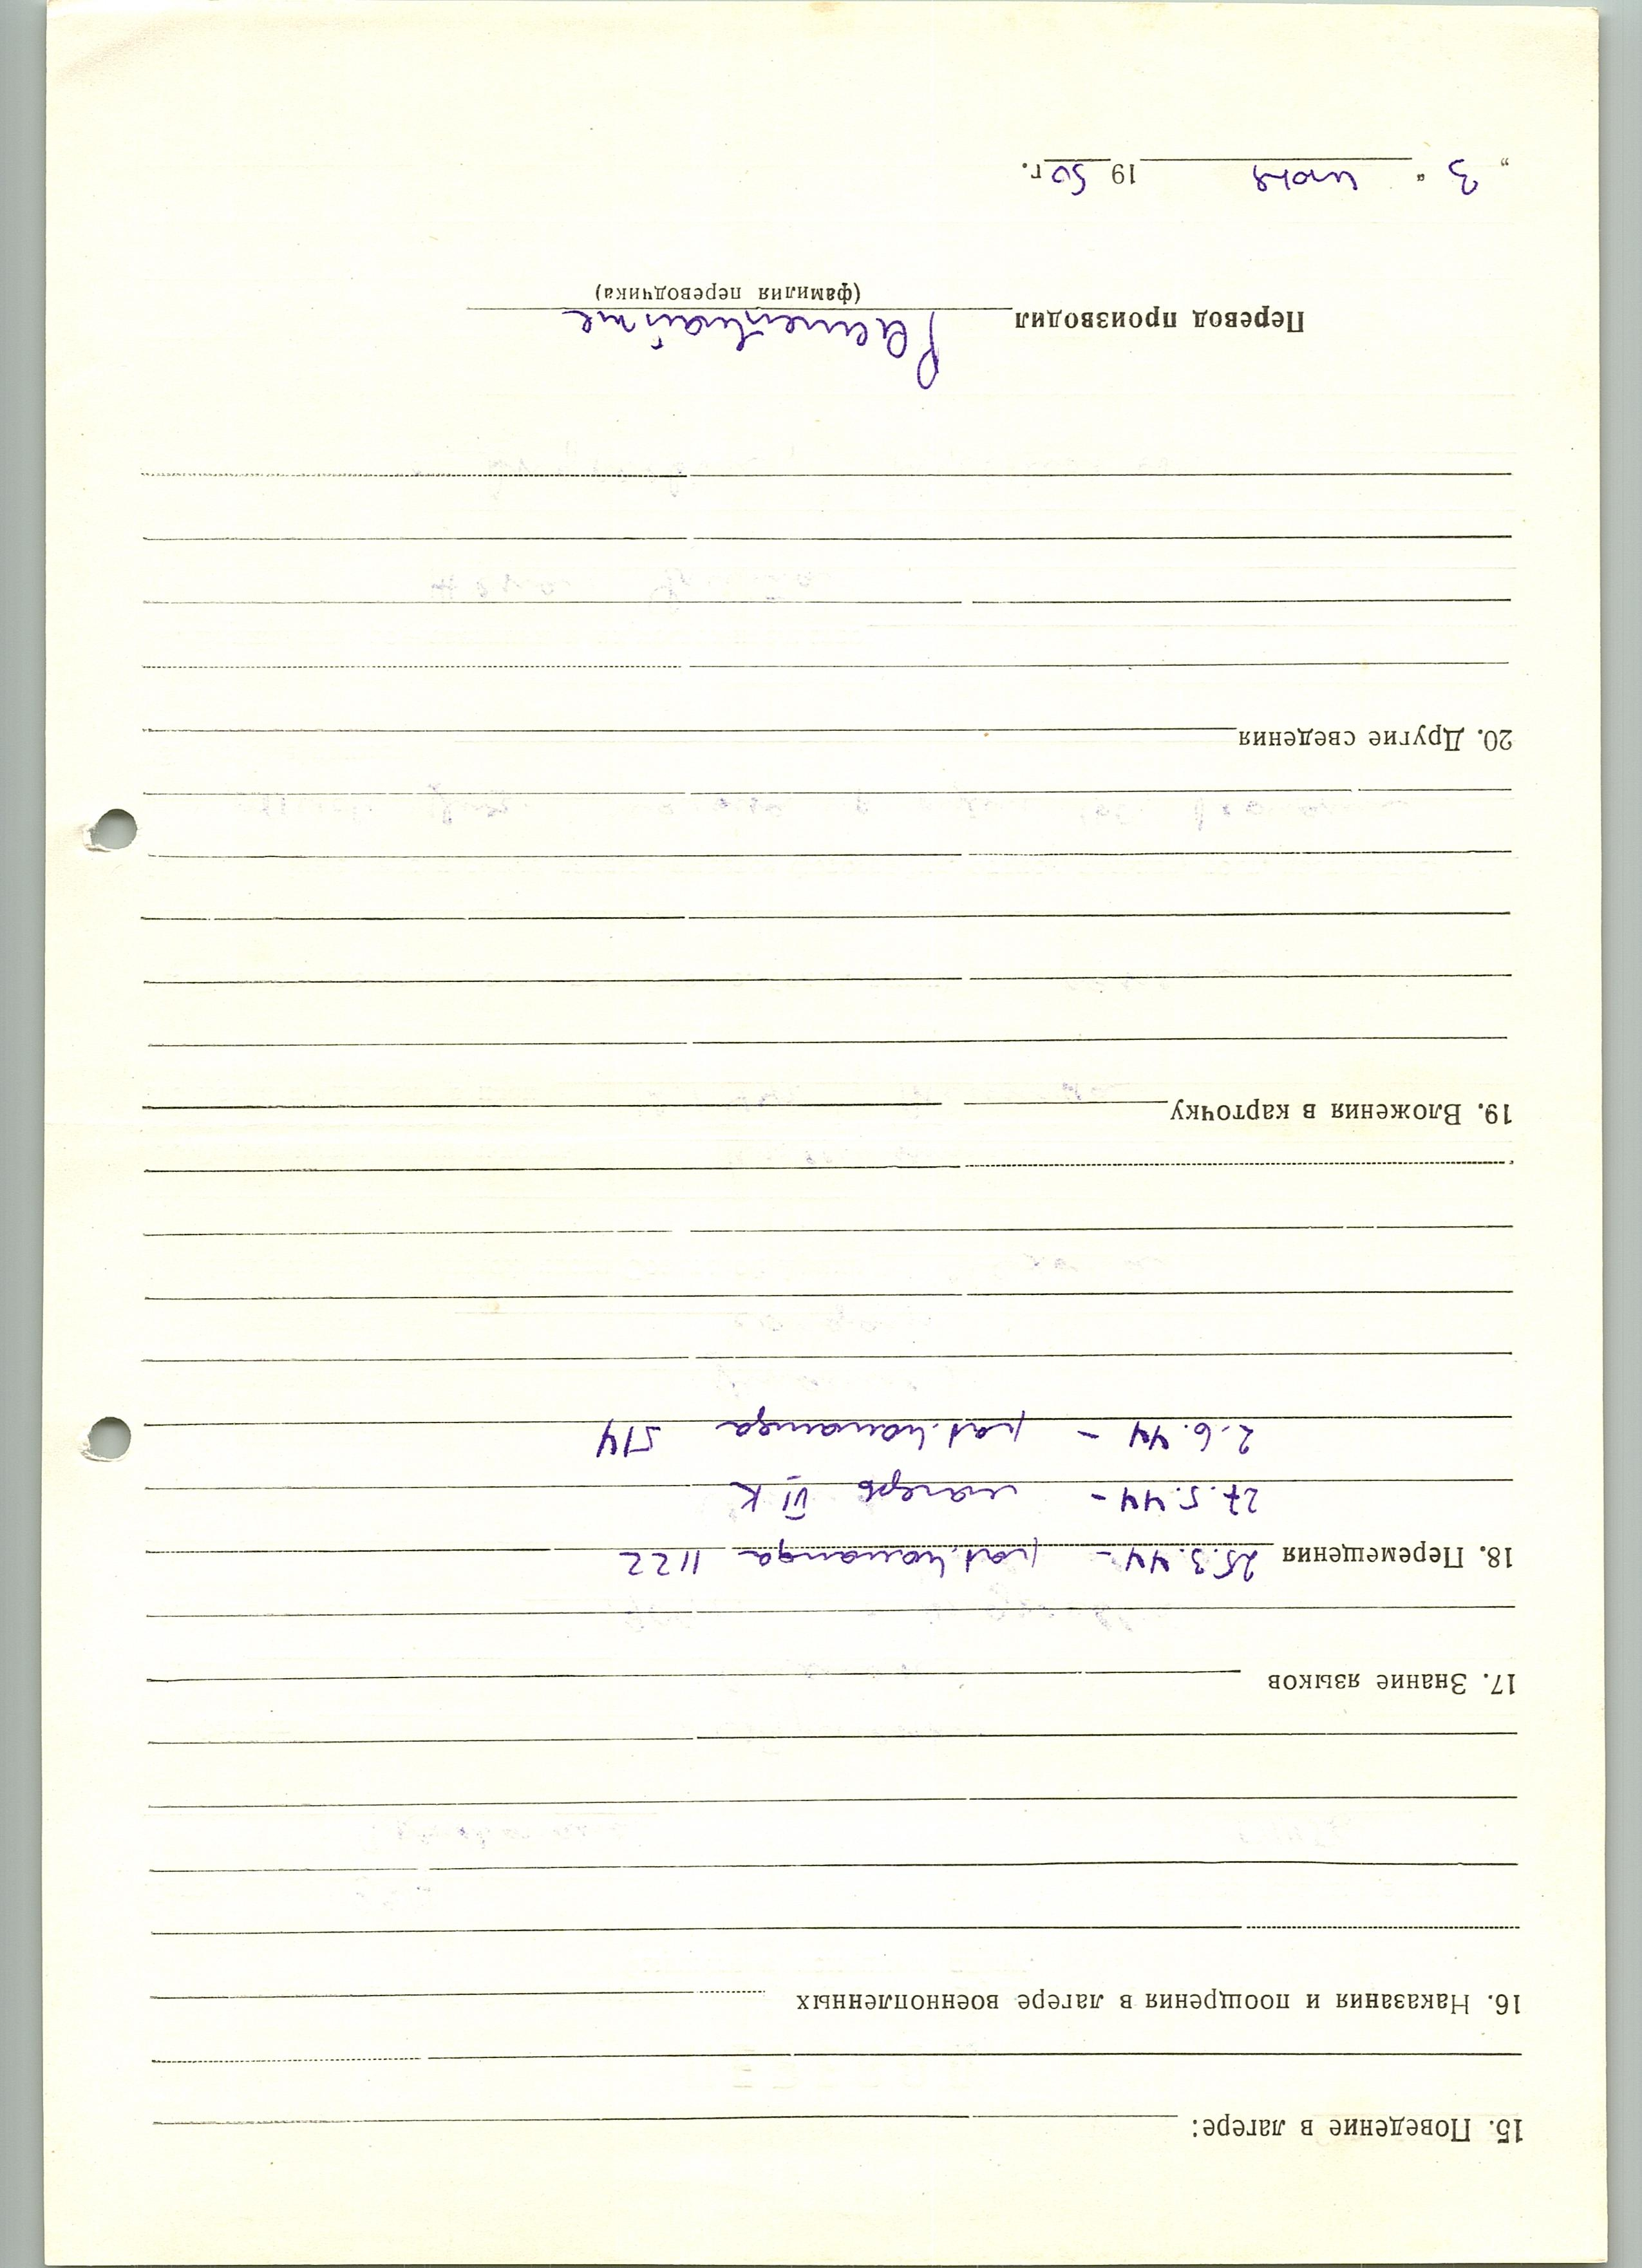 15. Поведение в лагере:
16. Наказания и поощрения в лагере военнопленных
17. Знание языков
18. Перемещения 25.3.44 – раб. команда 1122
27.5.44 – лагерь VI K
2.6.44 – раб. команда 514
19. Вложения в карточку
20. Другие сведения
Перевод производил
(фамилия переводчика)
„ 3 “ июня 19 50 г.